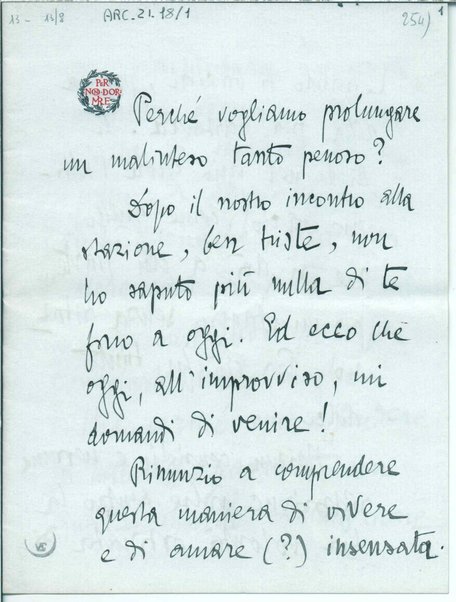 13 - 13/8
ARC.21.18/1
254)
1
PER
NON DOR
MIRE
Perché vogliamo prolungare
un malinteso tanto penoso?
Dopo il nostro incontro alla
stazione, ben triste, non
ho saputo più nulla di te
fino a oggi. Ed ecco che
oggi, all'improvviso, mi
domandi di venire!
Rinunzio a comprendere
questa maniera di vivere
e di amare (?) insensata.